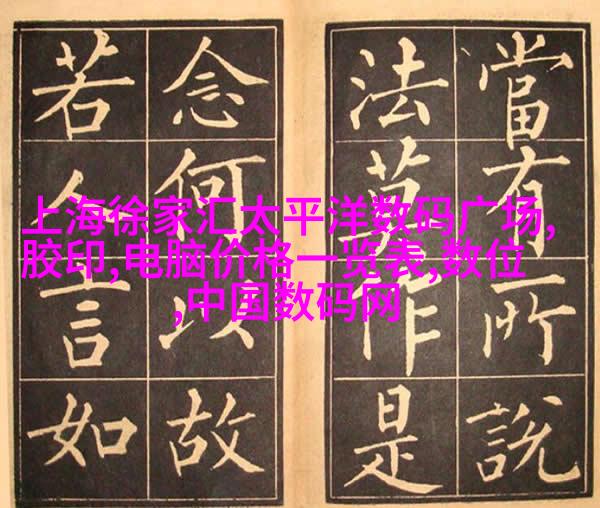 當有所說
法莫作是
念何以故
若人言如
上海徐家汇太平洋数码广场,
胶印,电脑价格一览表,数位
,中国数码网